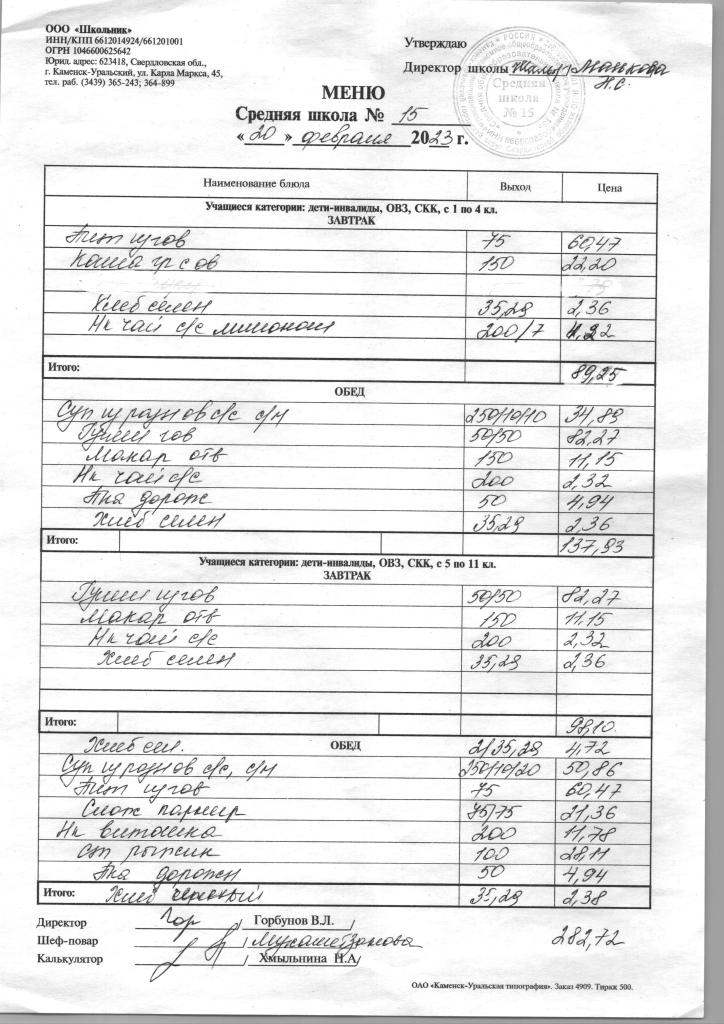 ООО «Школьник»
ИНН/КПП 6612014924/661201001
ОГРН 1046600625642
Юрид. адрес: 623418, Свердловская обл.,
г. Каменск-Уральский, ул. Карла Маркса, 45,
тел. раб. (3439) 365-243; 364-899
Утверждаю
Директор школы
РОССИЯ
Средняя
школа
№ 15
МЕНЮ
Средняя школа № 15
«20» февраля 2023 г.
Наименование блюда Выход Цена
Учащиеся категории: дети-инвалиды, ОВЗ, СКК, с 1 по 4 кл.
ЗАВТРАК
75 60,47
Каша 150 22,20
Хлеб селен 35,29 2,36
Нк чай с/с лимоном 200/7 4,22
Итого: 89,25
ОБЕД
Суп с/с с/м 250/10/10 34,89
50/50 82,27
Макар отв 150 11,15
Нк чай с/с 200 2,32
дорож 50 4,94
Хлеб селен 35,29 2,36
Итого: 137,93
Учащиеся категории: дети-инвалиды, ОВЗ, СКК, с 5 по 11 кл.
ЗАВТРАК
50/50 82,27
Макар отв 150 11,15
Нк чай с/с 200 2,32
Хлеб селен 35,29 2,36
Итого: 98,10
Хлеб сел. ОБЕД 2/35,29 4,72
Суп с/с, с/м 250/10/20 50,86
75 60,47
75/75 21,36
Нк витошка 200 11,78
100 28,11
дорожн 50 4,94
Итого: Хлеб 35,29 2,38
Директор / Горбунов В.Л. /
Шеф-повар /
Калькулятор / Хмыльнина Н.А/
282,72
ОАО «Каменск-Уральская типография». Заказ 4909. Тираж 500.